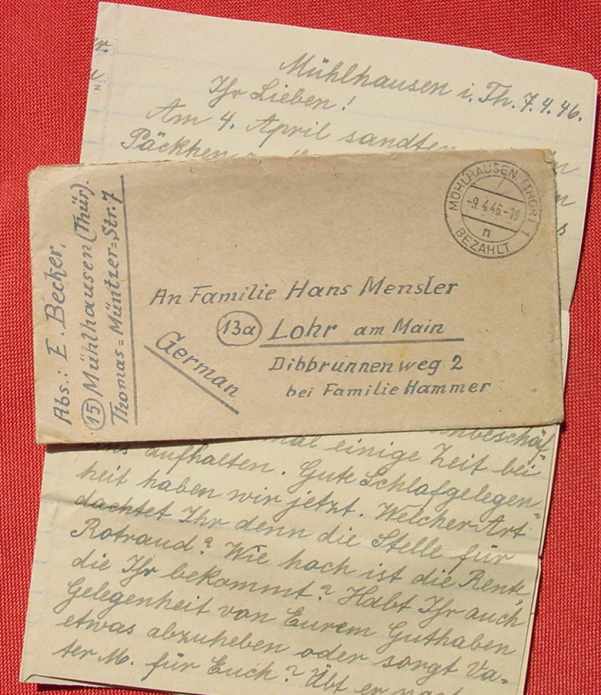 Mühlhausen i. Th. 7.4.46.
Ihr Lieben!
Am 4. April sandten
Päckchen
MÜHLHAUSEN (THÜR) 1
-9.4.46.-18
n
BEZAHLT
Abs.: E. Becker,
(15) Mühlhausen (Thür).
Thomas=Müntzer=Str. 7
An Familie Hans Mensler
(13a) Lohr am Main
Dibbrunnenweg 2
bei Familie Hammer
German
mal einige Zeit bei
uns aufhalten. Gute Schlafgelegen=
heit haben wir jetzt. Welcher Art
dachtet Ihr denn die Stelle für
Rotraud? Wie hoch ist die Rente
die Ihr bekommt? Habt Ihr auch
Gelegenheit von Eurem Guthaben
etwas abzuheben oder sorgt Va=
ter M. für Euch? Übt er